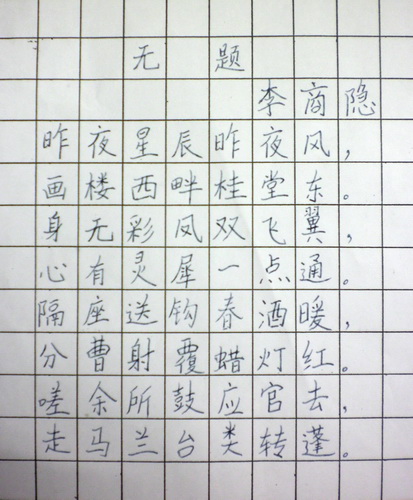 无题
李商隐
昨夜星辰昨夜风，
画楼西畔桂堂东。
身无彩凤双飞翼，
心有灵犀一点通。
隔座送钩春酒暖，
分曹射覆蜡灯红。
嗟余所鼓应官去，
走马兰台类转蓬。